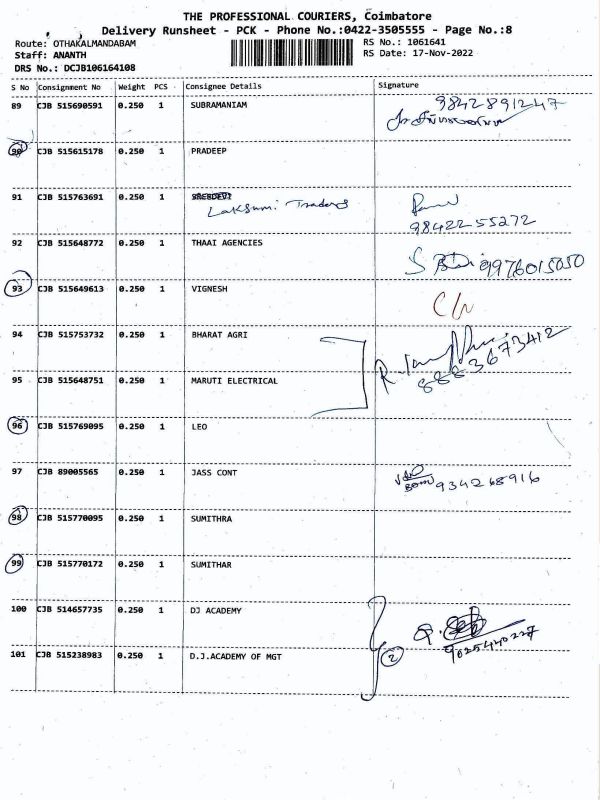 THE PROFESSIONAL COURIERS, Coimbatore
Delivery Runsheet - PCK - Phone No.:0422-3505555 - Page No.:8
Route: OTHAKALMANDABAM
RS No.: 1061641
Staff: ANANTH
RS Date: 17-Nov-2022
DRS No.: DCJB106164108
S No Consignment No Weight PCS Consignee Details Signature
89 CJB 515690591 0.250 1 SUBRAMANIAM 9842891247
90 CJB 515615178 0.250 1 PRADEEP
91 CJB 515763691 0.250 1 SREEDEVI
Lakshmi Traders
9842255272
92 CJB 515648772 0.250 1 THAAI AGENCIES
9976015050
93 CJB 515649613 0.250 1 VIGNESH
94 CJB 515753732 0.250 1 BHARAT AGRI
8883673412
95 CJB 515648751 0.250 1 MARUTI ELECTRICAL
96 CJB 515769095 0.250 1 LEO
97 CJB 89005565 0.250 1 JASS CONT
934268916
98 CJB 515770095 0.250 1 SUMITHRA
99 CJB 515770172 0.250 1 SUMITHAR
100 CJB 514657735 0.250 1 DJ ACADEMY
9025440227
101 CJB 515238983 0.250 1 D.J.ACADEMY OF MGT 2